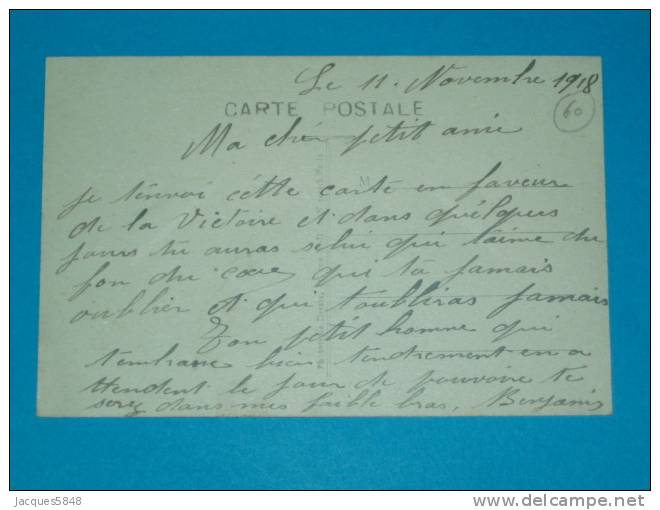 Le 11. Novembre 1918
CARTE POSTALE
60
Ma chér petit amie
M
je tenvoi cétte carte en faveur
de la Victoire et dans quélques
jours tu auras selui qui t'aime du
fon du coeur qui ta jamais
oublier et qui toubliras jamais
Ton petit homme qui
tembrasse bien tendrement en a
ttendent le jour de pouvoire te
serez dans mes faible bras, Benjamin
Jacques5848
delcampe.net